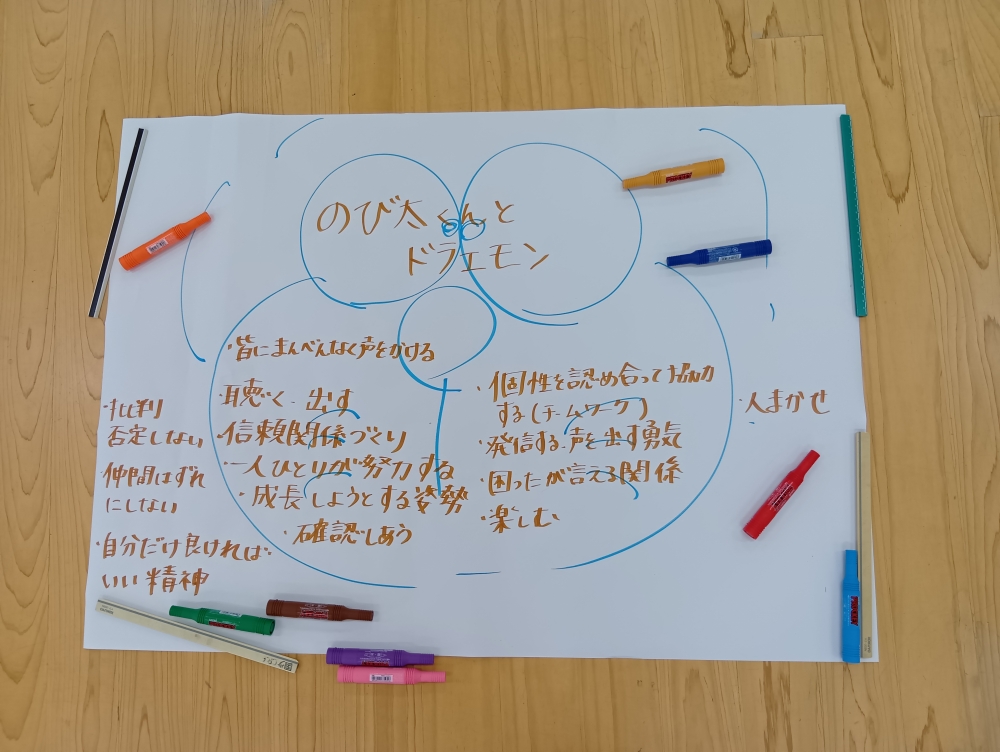 のび太くんと
ドラエモン
・皆にまんべんなく声をかける
聴く・出す
・信頼関係づくり
・一人ひとりが努力する
・成長しようとする姿勢
・確認しあう
・個性を認め合って協力
する(チームワーク)
・発信する・声を出す勇気
・困ったが言える関係
・楽しむ
・批判
否定しない
仲間はずれ
にしない
・自分だけ良ければ
いい精神
・人まかせ